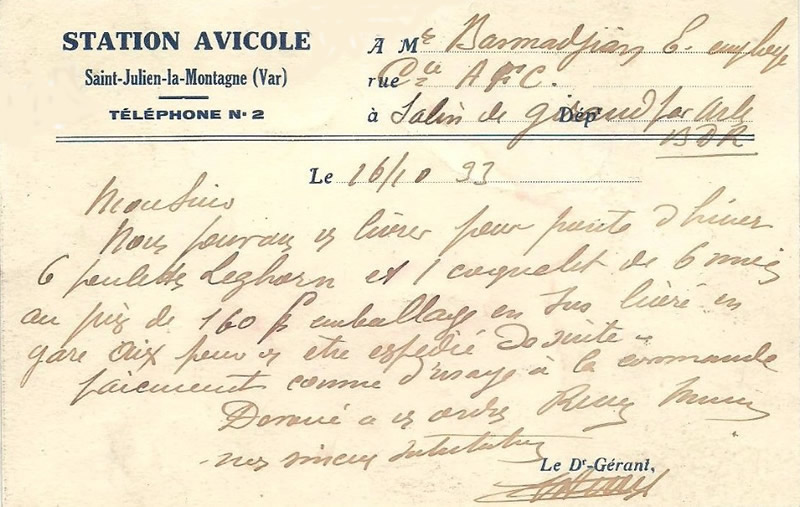 STATION AVICOLE
Saint-Julien-la-Montagne (Var)
TÉLÉPHONE Nº 2
À Mr Barmadjian E. employé
rue Cie AFC.
à Salin de giraud par Arles Dépt
BDR
Le 16/10 33
Monsieur
Nous pouvons vs livrer pour ponte d'hiver
6 poulettes Leghorn et 1 coquelet de 6 mois
au prix de 160 f emballage en sus livré en
gare Aix pouvons être expédié de suite
paiement comme d'usage à la commande
Dévoué à vs ordres
nos sincères salutations
Le Dr-Gérant,